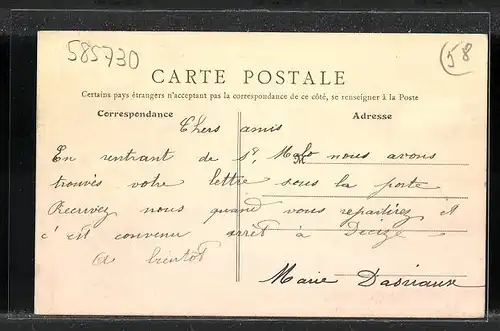 585730
58
CARTE POSTALE
Certains pays étrangers n'acceptant pas la correspondance de ce côté, se renseigner à la Poste
Correspondance
Adresse
Chers amis
En rentrant de St. Malo nous avons
trouvés votre lettre sous la porte
Recrivez nous quand vous repartirez et
c'est convenu arrêt à Decize
A bientôt
Marie